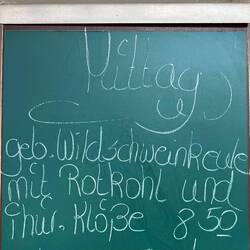 Mittag
geb. Wildschweinkeule
mit Rotkohl und
Thür. Klöße 8 50